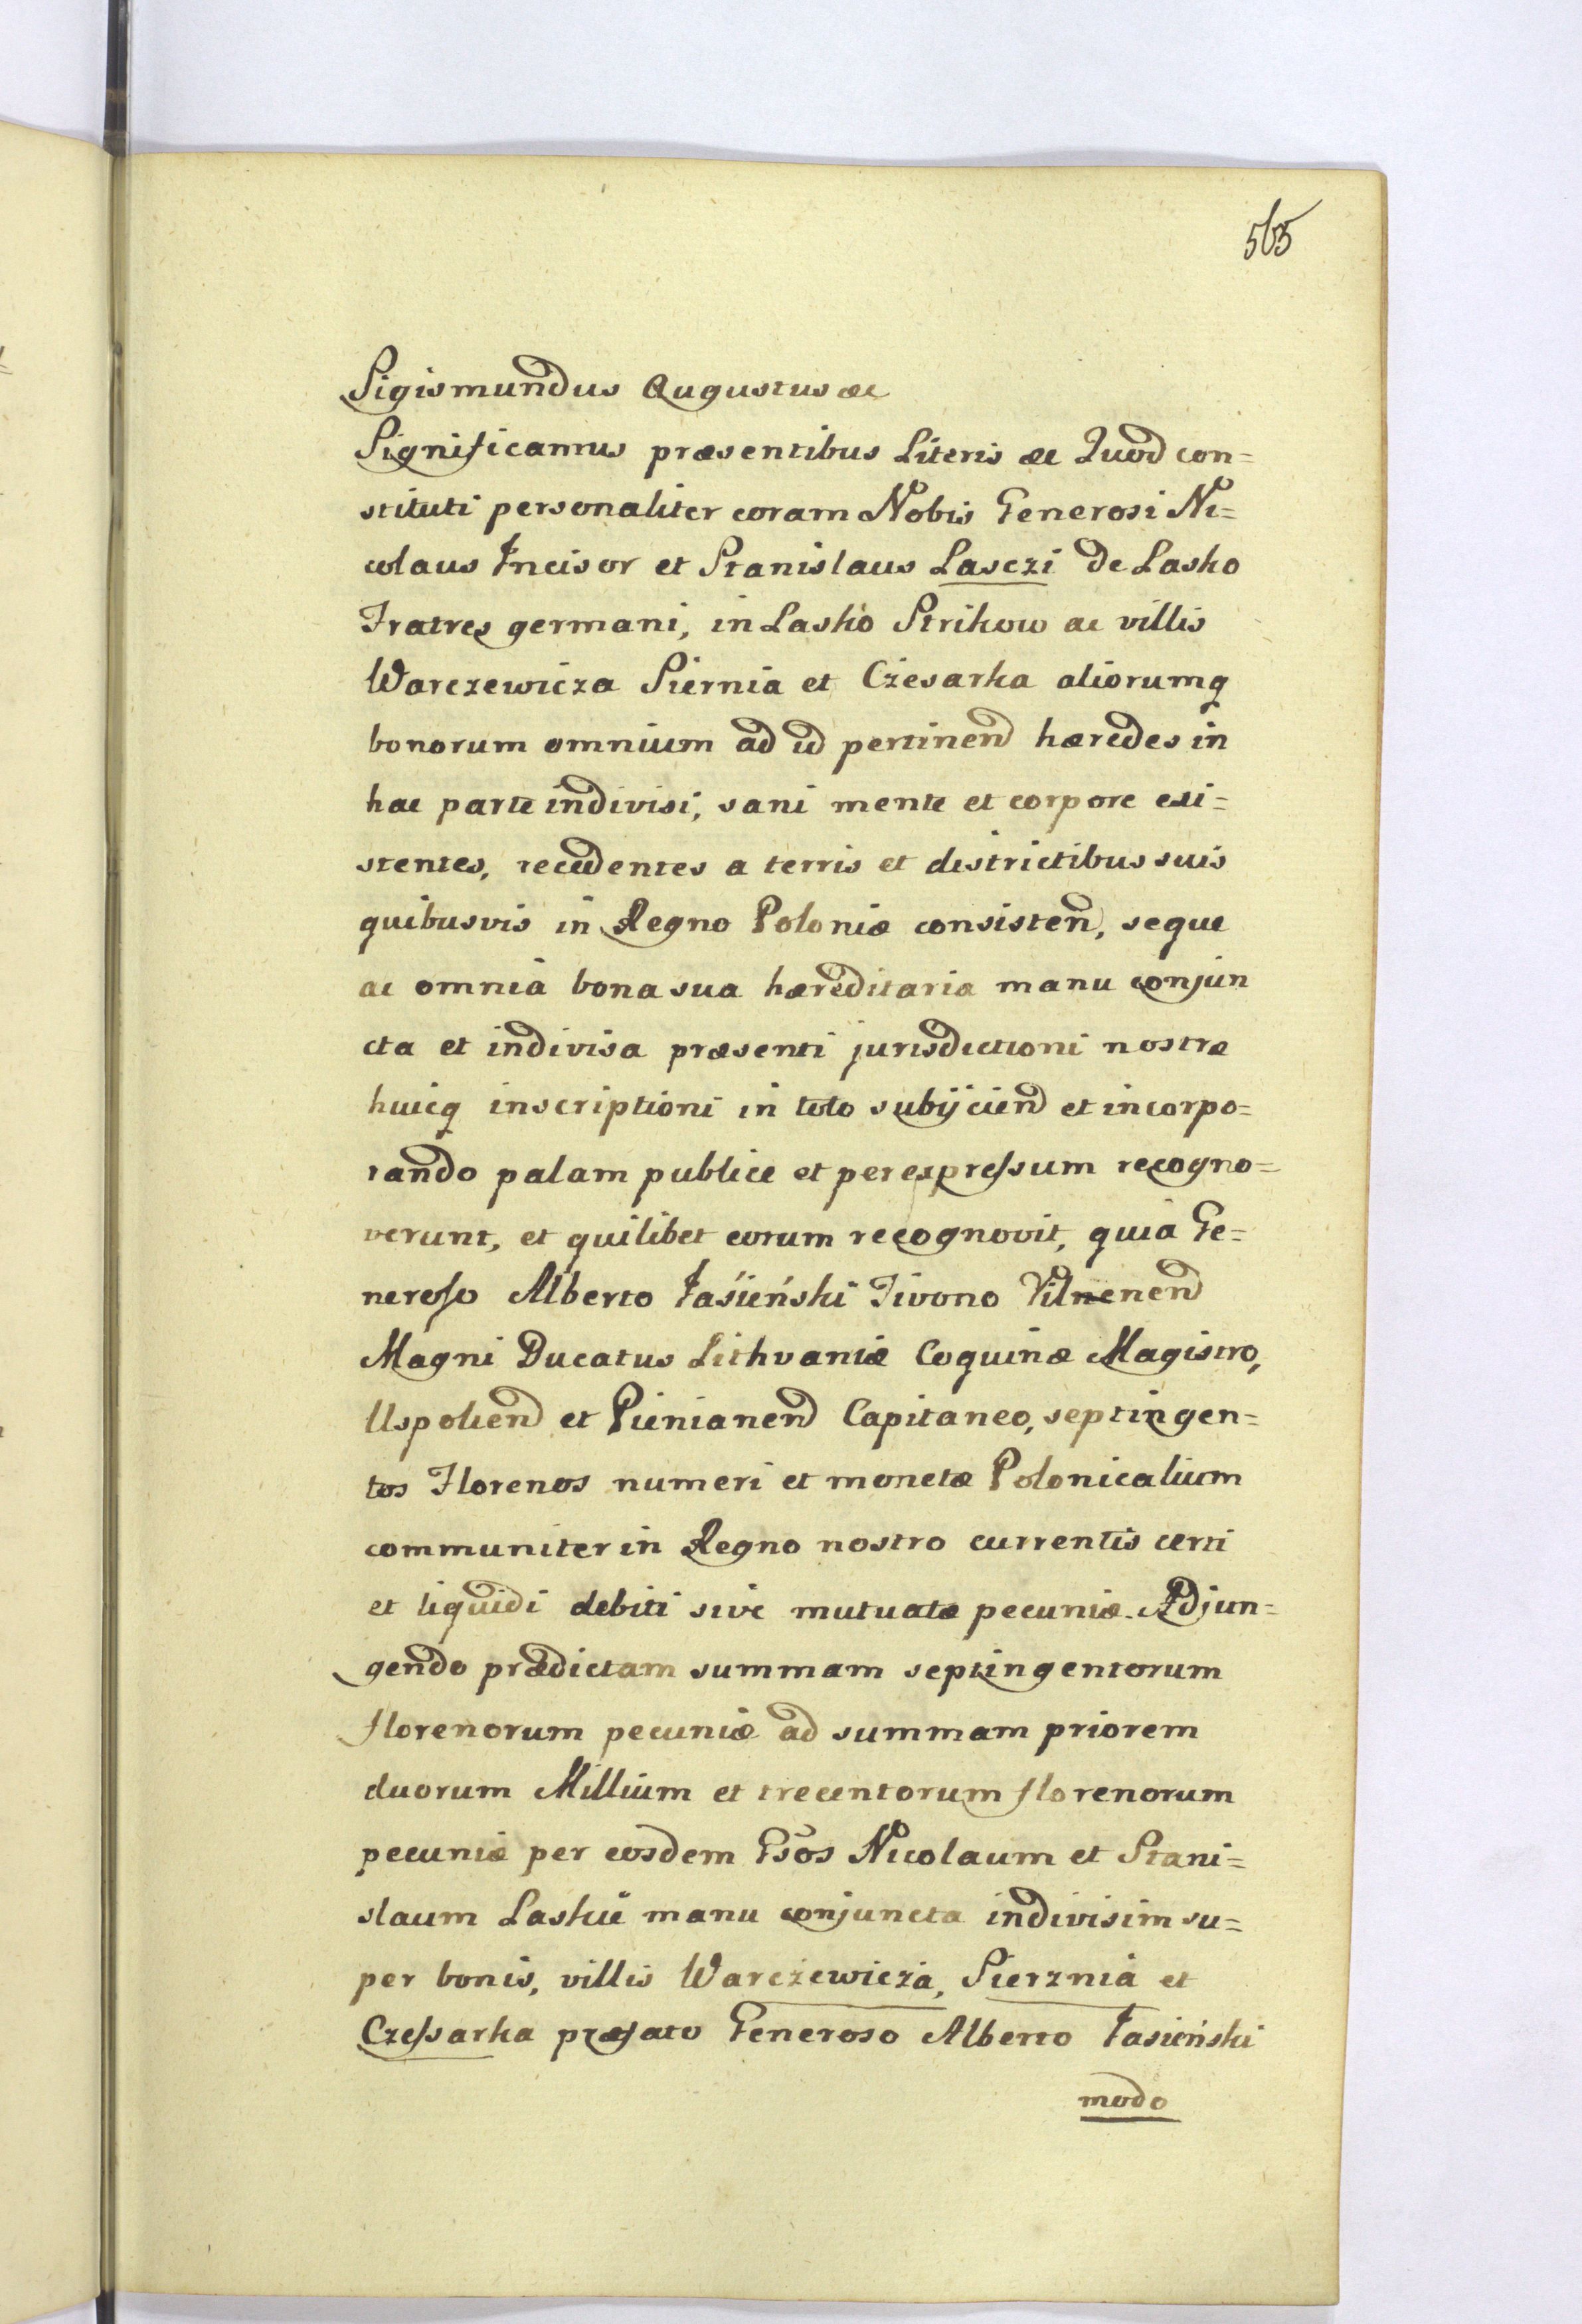 565
Sigismundus Augustus &c
Significamus præsentibus Literis &c Quod con=
stituti personaliter coram Nobis Generosi Ni=
colaus Incisor et Stanislaus Lasczi de Lasko
Fratres germani, in Lasko Strikow ac villis
Warczewicza Siernia et Czesarka aliorumq
bonorum omnium ad id pertinend hæredes in
hac parte indivisi, sani mente et corpore exi=
stentes, recedentes a terris et districtibus suis
quibusvis in Regno Poloniæ consisten, seque
ac omnia bona sua hæreditaria manu conjun
cta et indivisa præsenti jurisdictioni nostræ
huicq inscriptioni in toto subijciend et incorpo=
rando palam publice et per expressum recogno=
verunt, et quilibet eorum recognovit, quia Ge=
neroso Alberto Jasieński Tivono Vilnenend
Magni Ducatus Lithvaniæ Coquinæ Magistro,
Uspoliend et Pienianend Capitaneo, septingen=
tos Florenos numeri et monetæ Polonicalium
communiter in Regno nostro currentis certi
et liquidi debiti sive mutuatæ pecuniæ. Adjun=
gendo prædictam summam septingentorum
florenorum pecuniæ ad summam priorem
duorum Millium et trecentorum florenorum
pecuniæ per eosdem Gsos Nicolaum et Stani=
slaum Laskie manu conjuncta indivisim su=
per bonis, villis Warczewicza, Sierznia et
Czessarka præfato Generoso Alberto Jasieński
modo